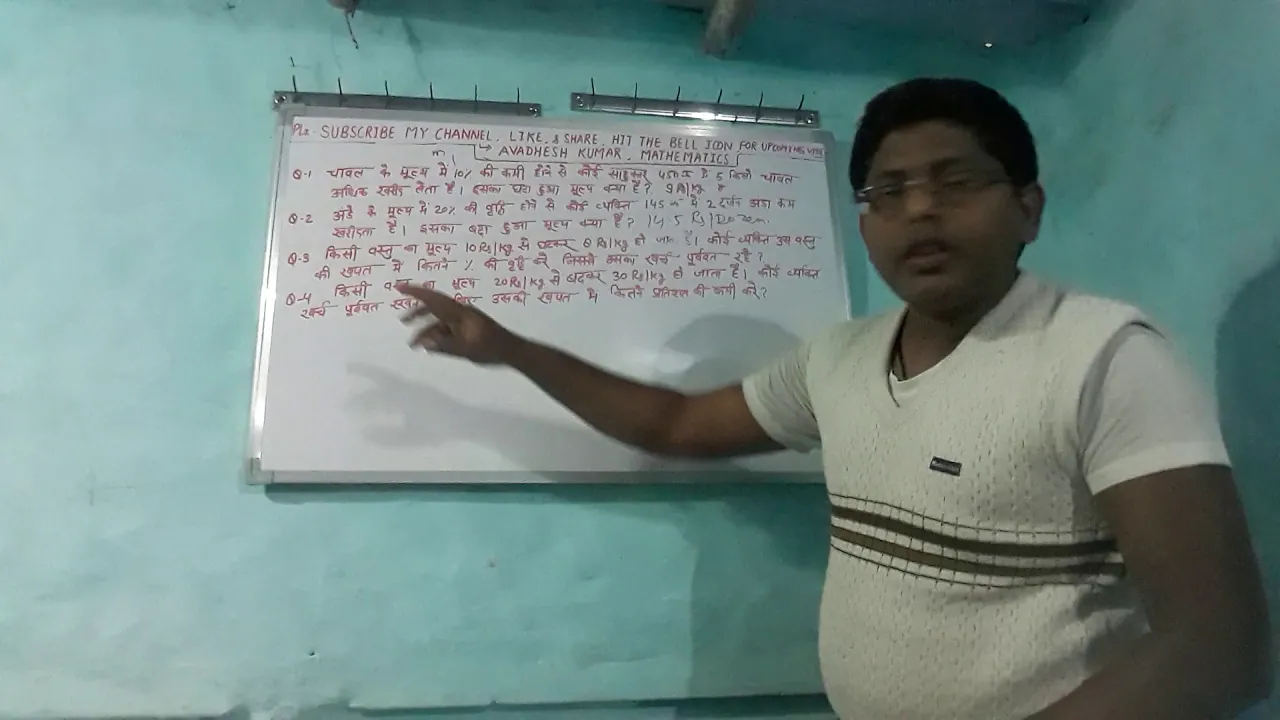 Plz. SUBSCRIBE MY CHANNEL, LIKE, & SHARE, HIT THE BELL ICON FOR UPCOMING
AVADHESH KUMAR, MATHEMATICS
Q-1 चावल के मूल्य में 10% की कमी होने से कोई साहूकार 450 में 5 किलो चावल
अधिक खरीद लेता है। इसका घटा हुआ मूल्य क्या है?
Q-2 अंडे के मूल्य में 20% की वृद्धि होने से कोई व्यक्ति 145 में 2 दर्जन अंडा कम
खरीदता है। इसका बढ़ा हुआ मूल्य क्या है? 14.5 Rs/Dozen.
Q-3 किसी वस्तु का मूल्य 10 Rs/kg से घटकर 8 Rs/kg हो जाता है। कोई व्यक्ति उस वस्तु
की खपत में कितने % की वृद्धि करे जिससे उसका खर्च पूर्ववत रहे?
Q-4 किसी का मूल्य 20 Rs/kg से बढ़कर 30 Rs/kg हो जाता है। कोई व्यक्ति
खर्च पूर्ववत उसकी खपत में कितने प्रतिशत की कमी करे?